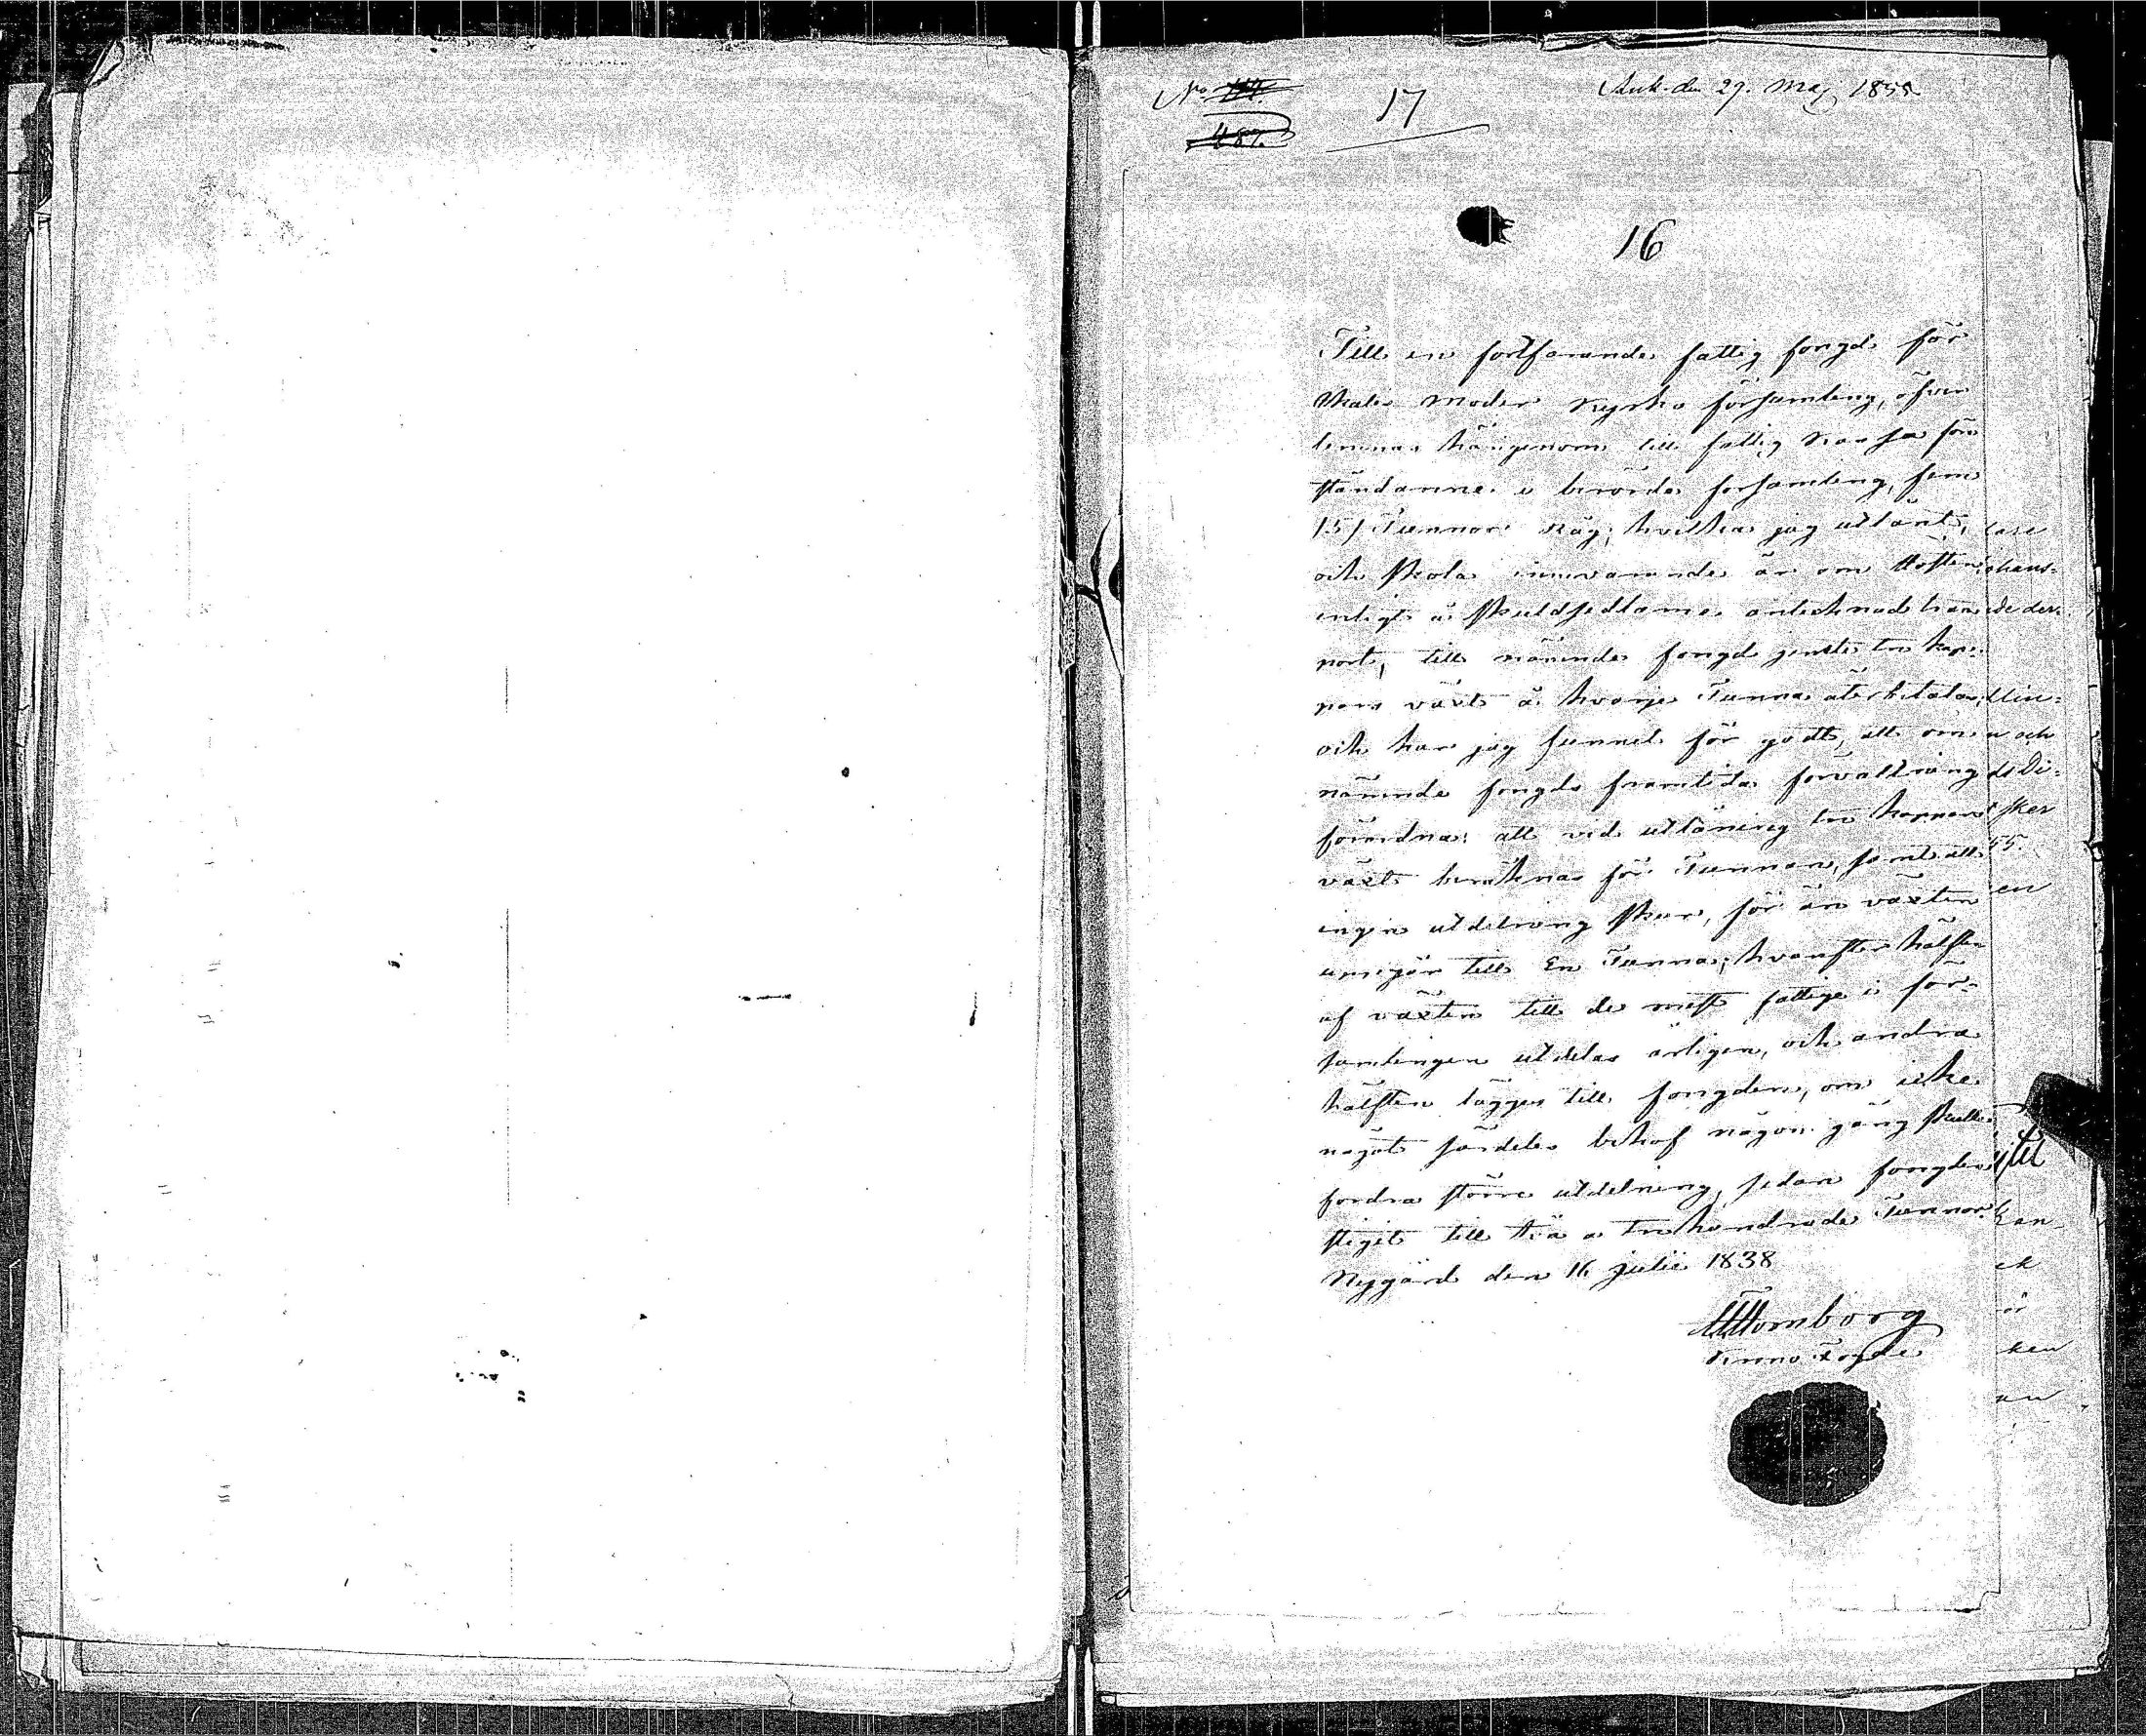 No
487.
17
Ank. den 29. Maj 1855
16
Till en fortfarande fattig fongd för
moder Kyrko församling, öfver
lemnas härigenom till fattig Kassa före
ståndarne i berörde församling, fem
/5/ Tunnor Råg, hvilka jag utlånt,
och skola innevarande år om Hösten
enligt å skuldsedlarne antecknad
port, till nämnde fongd jemte tre kap-
pars växt å hvarje Tunna återbetalas,
och har jag funnet för godt, att om
nämnde fongds framtida förvaltning
förordna: att vid utlåning tre kappars
växt beräknas för Tunnan, samt att
ingen utdelning sker, för än växten
uppgår till En Tunna; hvarefter hälften
af växten till de mest fattige i för-
samlingen utdelas årligen, och andra
hälften lägges till fongden, om icke
något särdeles behof någon gång skulle
fordra större utdelning, sedan fongden
stigit till två a trehundrade Tunnor.
Nygård den 16 julii 1838